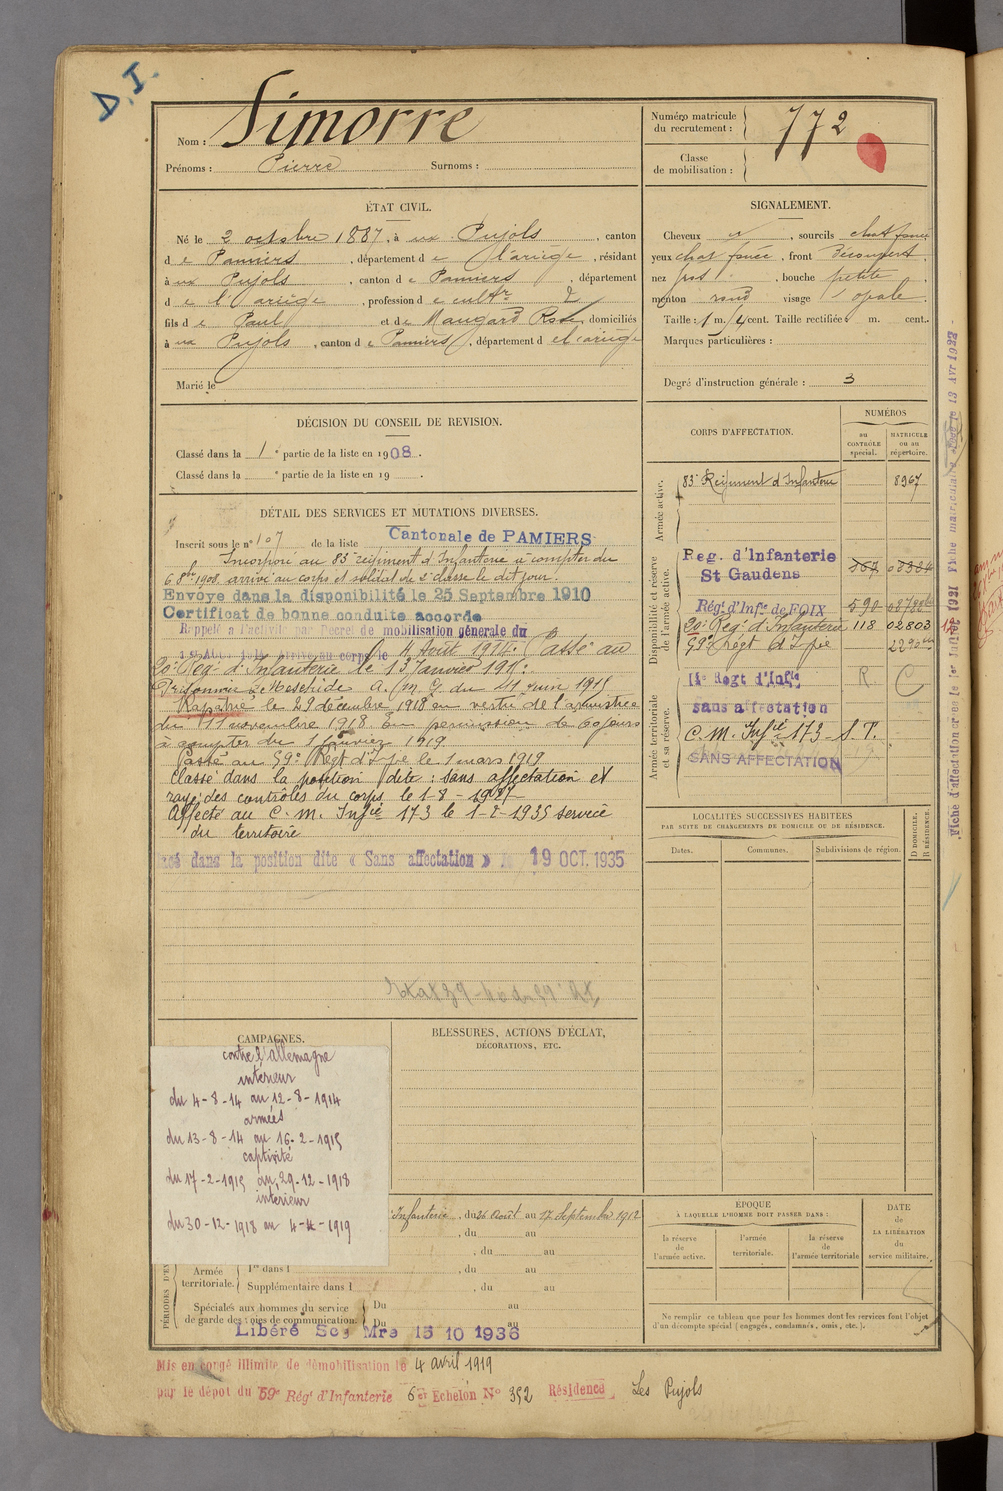 D.I.
Nom : Simorre
Prénoms : Pierre Surnoms :
Numéro matricule
du recrutement : 772
Classe
de mobilisation :
ÉTAT CIVIL.
Né le 2 octobre 1887, à ux Pujols, canton
de Pamiers, département de l'ariège, résidant
à ux Pujols, canton de Pamiers, département
de l'Ariège, profession de cultr
fils de Paul et de Maugard Rose, domiciliés
à ux Pujols, canton de Pamiers, département de l'ariège
Marié le
SIGNALEMENT.
Cheveux n, sourcils chat foncé
yeux chat foncé, front Découvert
nez, bouche petite
menton rond visage opale
Taille : 1 m. cent. Taille rectifiée : m. cent.
Marques particulières :
Degré d'instruction générale : 3
DÉCISION DU CONSEIL DE REVISION.
Classé dans la 1e partie de la liste en 1908.
Classé dans la e partie de la liste en 19
DÉTAIL DES SERVICES ET MUTATIONS DIVERSES.
Inscrit sous le n° 107 de la liste Cantonale de PAMIERS
Incorporé au 83e régiment d'Infanterie à compter du
6 8bre 1908, arrivé au corps et soldat de 2e classe le dit jour.
Envoyé dans la disponibilité le 25 Septembre 1910
Certificat de bonne conduite accordé
Rappelé à l'activité par Décret de mobilisation générale du
1er Août 1914. Arrivé au corps le 4 Août 1914. Passé au
20e Rég. d'Infanterie le 13 Janvier 1915.
Prisonnier à Meschede A. M. G. du 11 juin 1915
Rapatrié le 29 décembre 1918 en vertu de l'armistice
du 11 novembre 1918. En permission de 60 jours
à compter du 1 février 1919.
Passé au 59e Régt d'Iie le 1 mars 1919
Classé dans la position dite : sans affectation et
rayé des contrôles du corps le 1-8-1927
Affecté au C. M. Infie 173 le 1-2-1935 service
du territoire
assé dans la position dite « Sans affectation » le 19 OCT. 1935
CORPS D'AFFECTATION.
NUMÉROS
au
CONTRÔLE
spécial.
MATRICULE
ou au
répertoire.
Armée active.
83e Régiment d'Infanterie 8967
Disponibilité et réserve
de l'armée active.
Reg. d'Infanterie
St Gaudens 367 08324
Rég. d'Infie de FOIX 590
20e Reg. d'Infanterie 118 02803
59e régt d'Iie
Armée territoriale
et sa réserve.
14e Regt d'Infie R. C
sans affectation
C. M. Infie 173 - S. T.
SANS AFFECTATION
LOCALITÉS SUCCESSIVES HABITÉES
PAR SUITE DE CHANGEMENTS DE DOMICILE OU DE RÉSIDENCE.
Dates. Communes. Subdivisions de région. D DOMICILE. R RÉSIDENCE.
CAMPAGNES.
contre l'allemagne
intérieur
du 4-8-14 au 12-8-1914
armées
du 13-8-14 au 16-2-1915
captivité
du 17-2-1915 au 29-12-1918
intérieur
du 30-12-1918 au 4-4-1919
BLESSURES, ACTIONS D'ÉCLAT,
DÉCORATIONS, ETC.
Infanterie, du 26 Août au 17 Septembre 1912
, du au
, du au
Armée
territoriale.
1re dans l , du au
Supplémentaire dans l , du au
Spéciales aux hommes du service
de garde des voies de communication. Du au
Du au
Libéré Sce Mre 15 10 1936
ÉPOQUE
À LAQUELLE L'HOMME DOIT PASSER DANS :
la réserve
de
l'armée active.
l'armée
territoriale.
la réserve
de
l'armée territoriale
DATE
de
LA LIBÉRATION
du
service militaire.
Ne remplir ce tableau que pour les hommes dont les services font l'objet
d'un décompte spécial (engagés, condamnés, omis, etc.).
Mis en congé illimité de démobilisation le 4 avril 1919
par le dépot du 59e Régt d'Infanterie 6e Echelon N° 352 Résidence Les Pujols